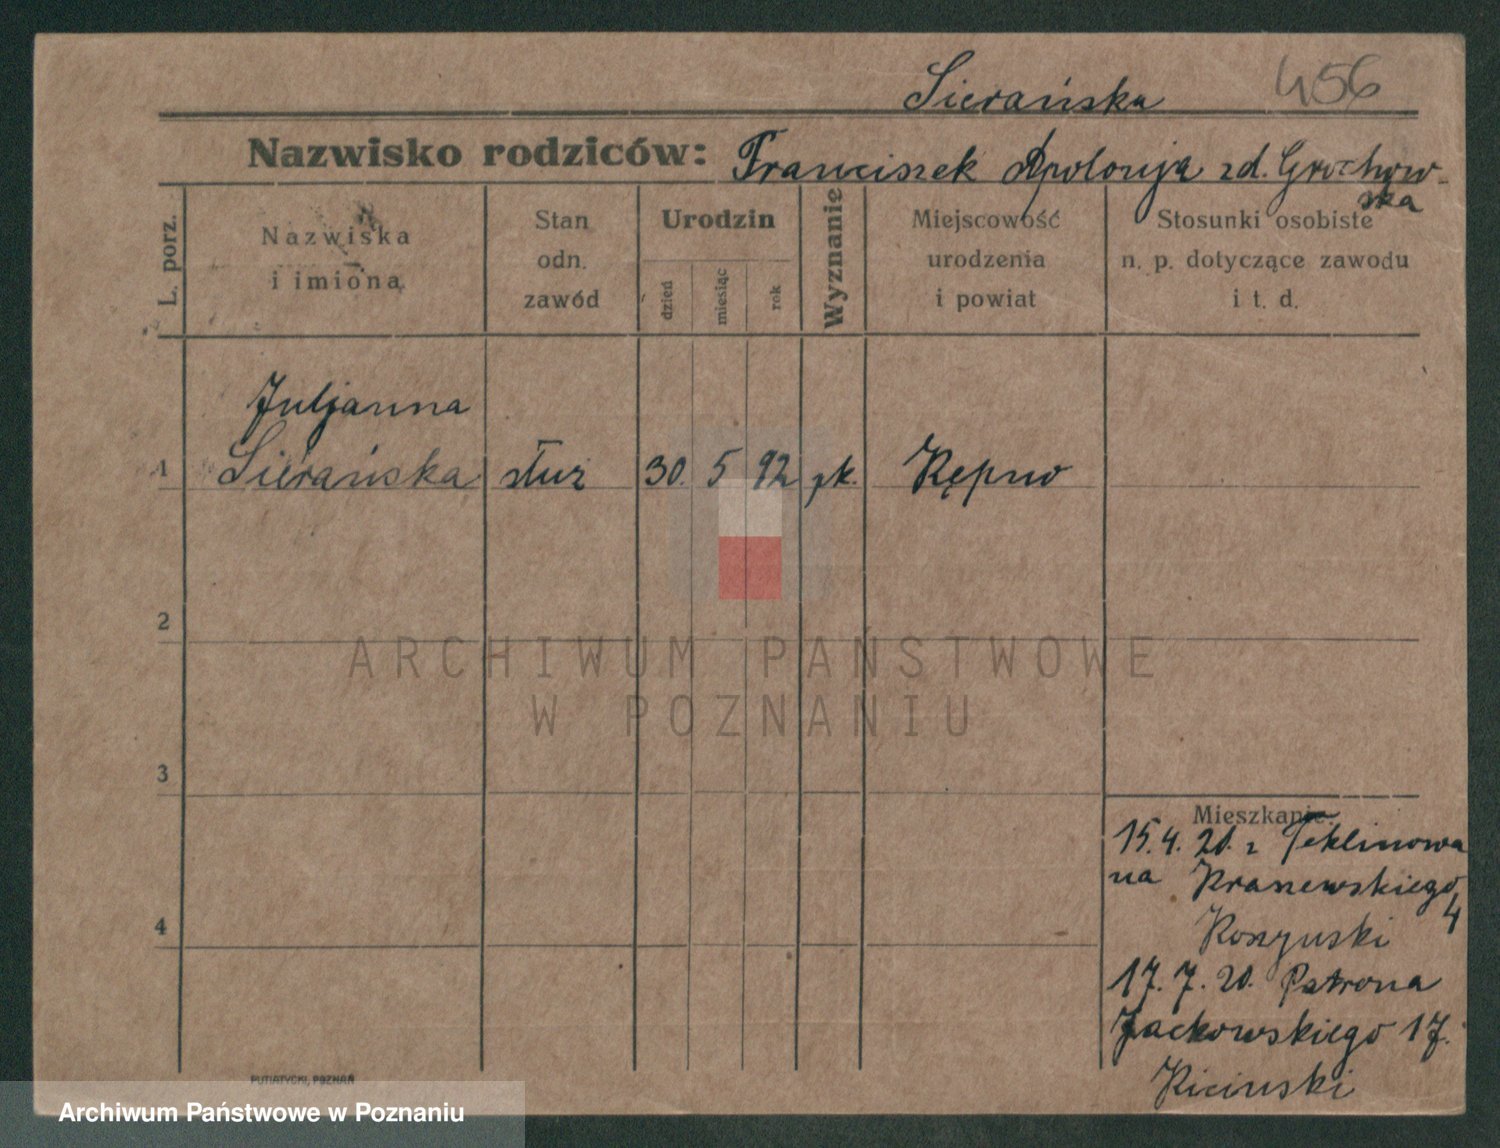 Sierańska 456
Nazwisko rodziców: Franciszek Apolonja zd. Grochow-
ska
L. porz.
Nazwiska
i imiona
Stan
odn.
zawód
Urodzin
dzień
miesiąc
rok
Wyznanie
Miejscowość
urodzenia
i powiat
Stosunki osobiste
n. p. dotyczące zawodu
i t. d.
Juljanna
1 Sierańska służ 30. 5 92 rk. Kępno
2
ARCHIWUM PAŃSTWOWE
W POZNANIU
3
Mieszkanie:
15.4. 20. z Teklinowa
na Kraszewskiego
4
Koszyuski
4
17. 7. 20. Patrona
Jackowskiego 17.
Kiciński
PUTIATYCKI, POZNAŃ
Archiwum Państwowe w Poznaniu